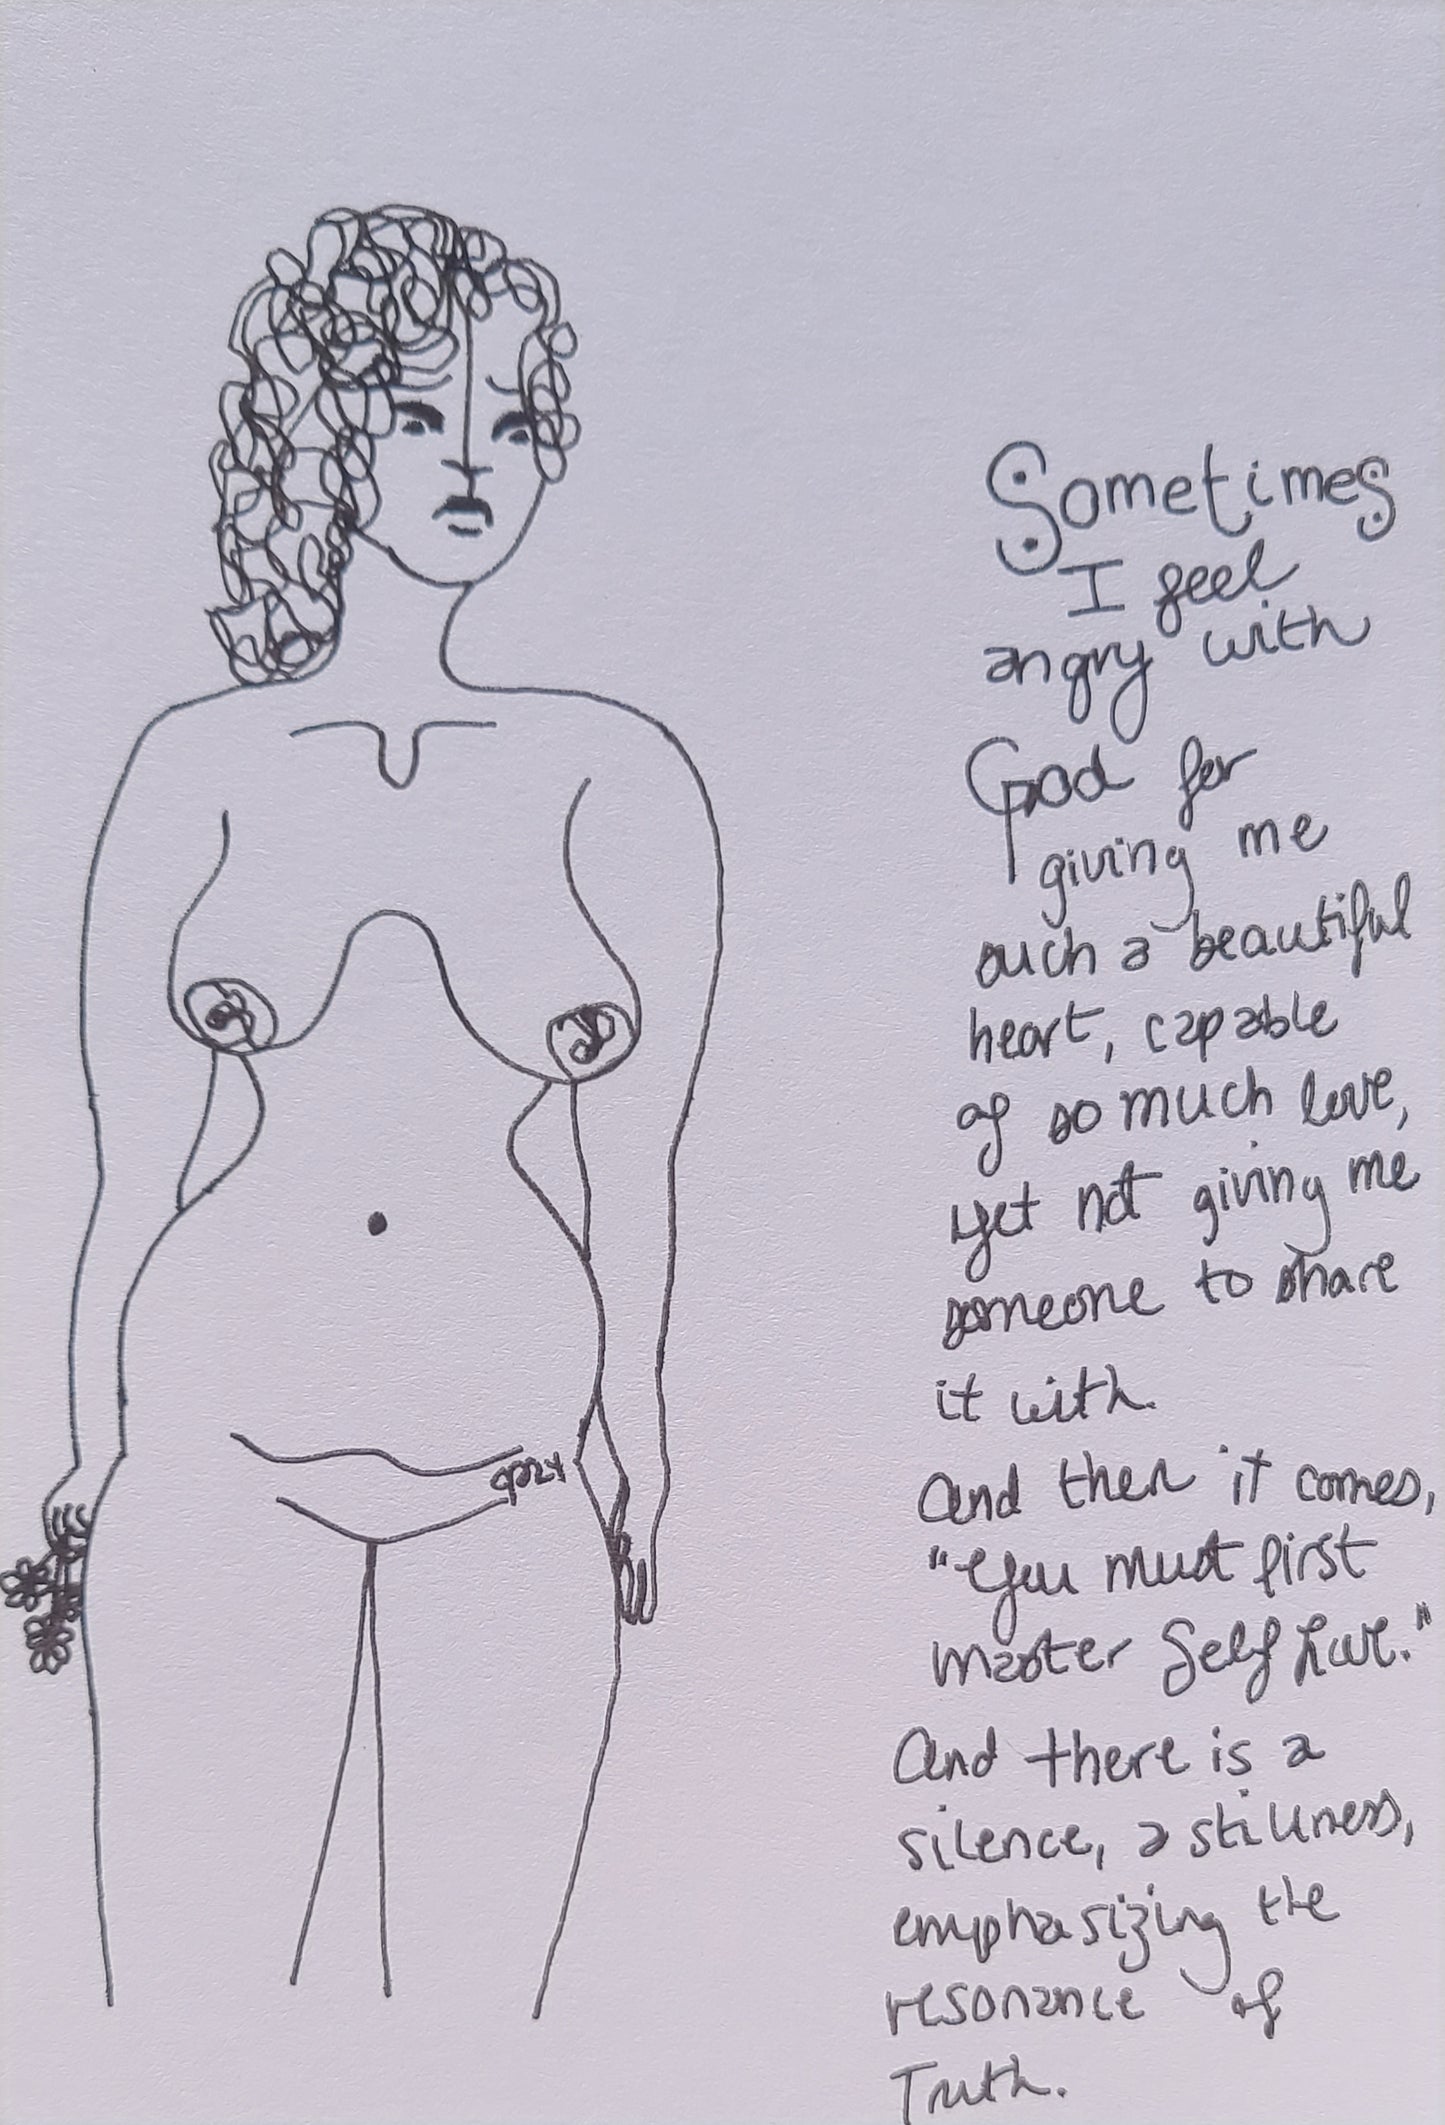 Sometimes
I feel
angry with
God for
giving me
such a beautiful
heart, capable
of so much love,
yet not giving me
someone to share
it with.
And then it comes,
"You must first
master Self Love."
And there is a
silence, a stillness,
emphasizing the
resonance of
Truth.